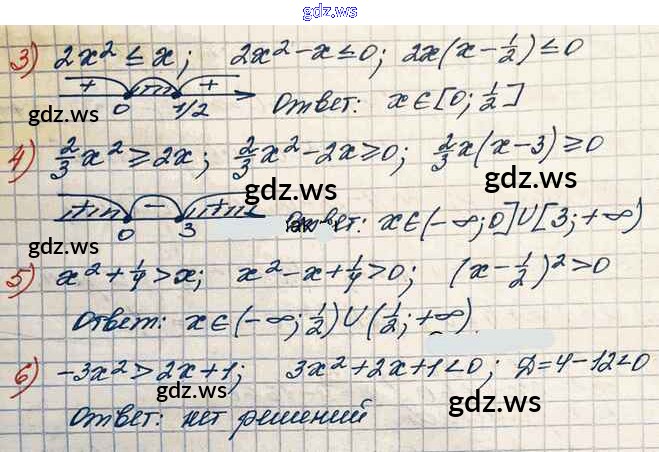 gdz.ws
3) 2x² ≤ x; 2x² - x ≤ 0; 2x(x - 1/2) ≤ 0
+ - +
0 1/2 Ответ: x ∈ [0; 1/2]
gdz.ws gdz.ws
4) 2/3 x² ≥ 2x; 2/3 x² - 2x ≥ 0; 2/3 x(x - 3) ≥ 0
gdz.ws
+ - +
0 3 Ответ: x ∈ (-∞; 0] ∪ [3; +∞)
gdz.ws
5) x² + 1/4 > x; x² - x + 1/4 > 0; (x - 1/2)² > 0
gdz.ws
Ответ: x ∈ (-∞; 1/2) ∪ (1/2; +∞)
6) -3x² > 2x + 1; 3x² + 2x + 1 < 0; D = 4 - 12 < 0
gdz.ws gdz.ws
Ответ: нет решений